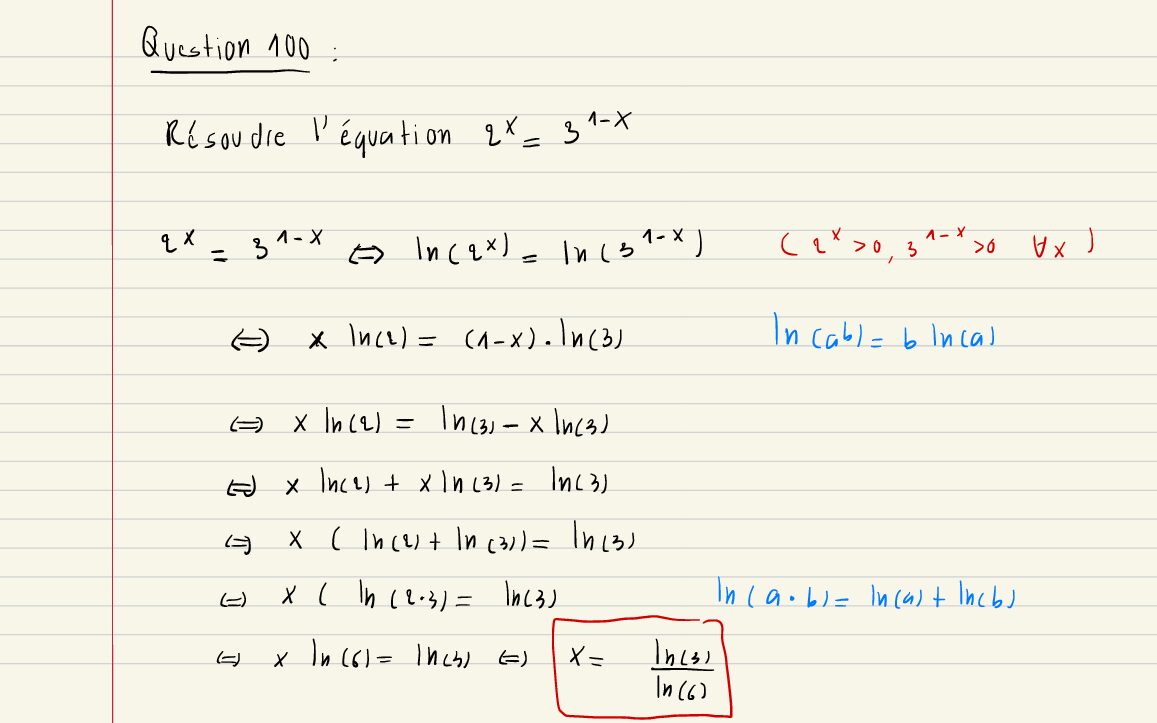 Question 100 :
Résoudre l'équation 2^x = 3^(1-x)
2^x = 3^(1-x) ⇔ ln(2^x) = ln(3^(1-x)) (2^x > 0, 3^(1-x) > 0 ∀x)
⇔ x ln(2) = (1-x).ln(3) ln(a^b) = b ln(a)
⇔ x ln(2) = ln(3) - x ln(3)
⇔ x ln(2) + x ln(3) = ln(3)
⇔ x ( ln(2) + ln(3)) = ln(3)
⇔ x ( ln(2·3) = ln(3) ln(a·b) = ln(a) + ln(b)
⇔ x ln(6) = ln(3) ⇔ x = ln(3)/ln(6)